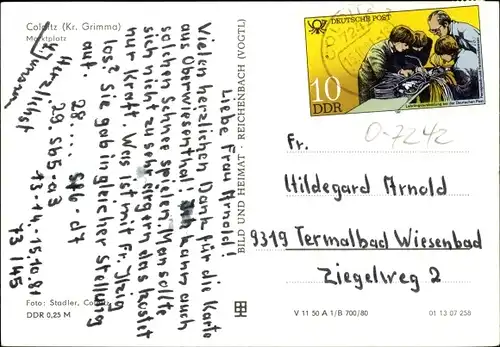 Colditz (Kr. Grimma)
Marktplatz
Liebe Frau Arnold!
Vielen herzlichen Dank für die Karte
aus Oberwiesenthal! Ich kann auch
solchen Schnee spielen. Man sollte
sich nicht zu sehr ärgern, das kostet
nur Kraft. Was ist mit Fr.
los? Sie gab in gleicher Stellung
auf. 28.... Sf6-d7
29. Sb5-a3
Herzlichst
13.-14.-15.10.81
73 145
Foto: Stadler, Colditz
DDR 0,25 M
BILD UND HEIMAT · REICHENBACH (VOGTL)
DEUTSCHE POST
10
DDR
O-7242
Fr.
Hildegard Arnold
9319 Termalbad Wiesenbad
Ziegelweg 2
V 11 50 A 1/B 700/80
01 13 07 258